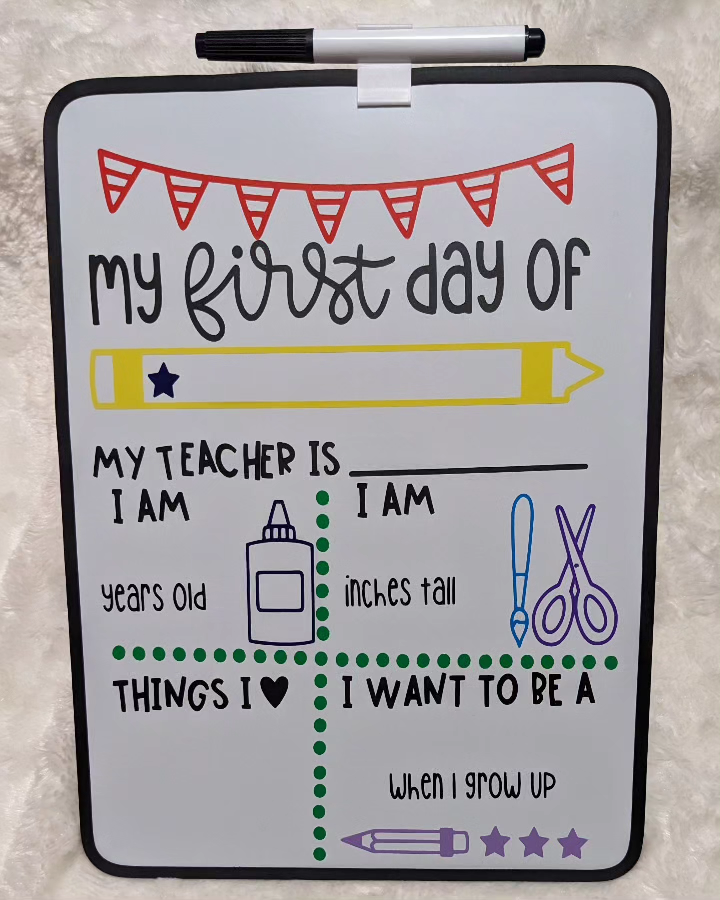 my first day OF
MY TEACHER IS
I AM
years old
I AM
inches tall
THINGS I ♥
I WANT TO BE A
when I grow up